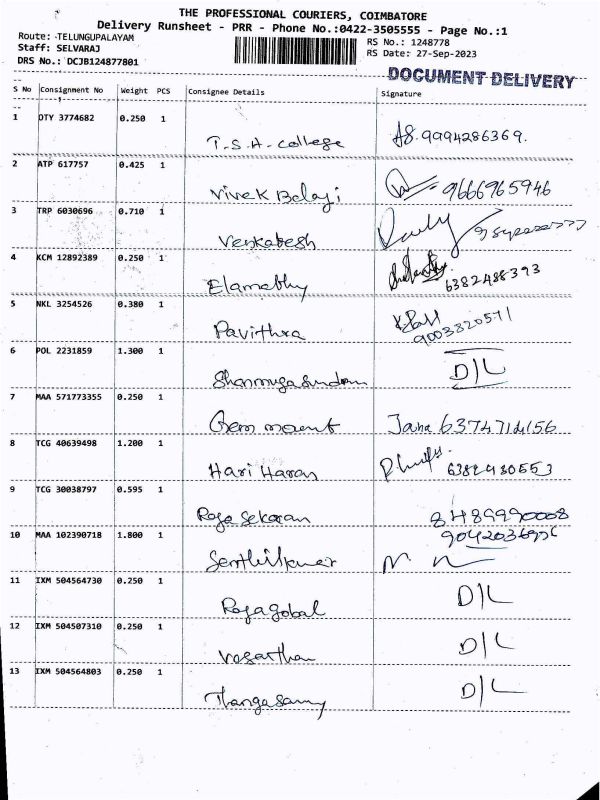 THE PROFESSIONAL COURIERS, COIMBATORE
Delivery Runsheet - PRR - Phone No.:0422-3505555 - Page No.:1
Route: TELUNGUPALAYAM RS No.: 1248778
Staff: SELVARAJ RS Date: 27-Sep-2023
DRS No.: DCJB124877801
DOCUMENT DELIVERY
S No Consignment No Weight PCS Consignee Details Signature
1 DTY 3774682 0.250 1
T.S.A. College 9994286369.
2 ATP 617757 0.425 1
Vivek Balaji 9666965946
3 TRP 6030696 0.710 1
Venkatesh
4 KCM 12892389 0.250 1
Elamathy 6382488393
5 NKL 3254526 0.380 1
Pavithra 9003820571
6 POL 2231859 1.300 1
Shanmuga Sundam D/L
7 MAA 571773355 0.250 1
Gem mount Jana 6374714156
8 TCG 40639498 1.200 1
Hari Haran 6382930553
9 TCG 30038797 0.595 1
Raja Sekaran 8489990008
10 MAA 102390718 1.800 1
Senthilkumar
11 IXM 504564730 0.250 1
Rajagobal D/L
12 IXM 504507310 0.250 1
Vasanthan D/L
13 IXM 504564803 0.250 1
Thangasamy D/L